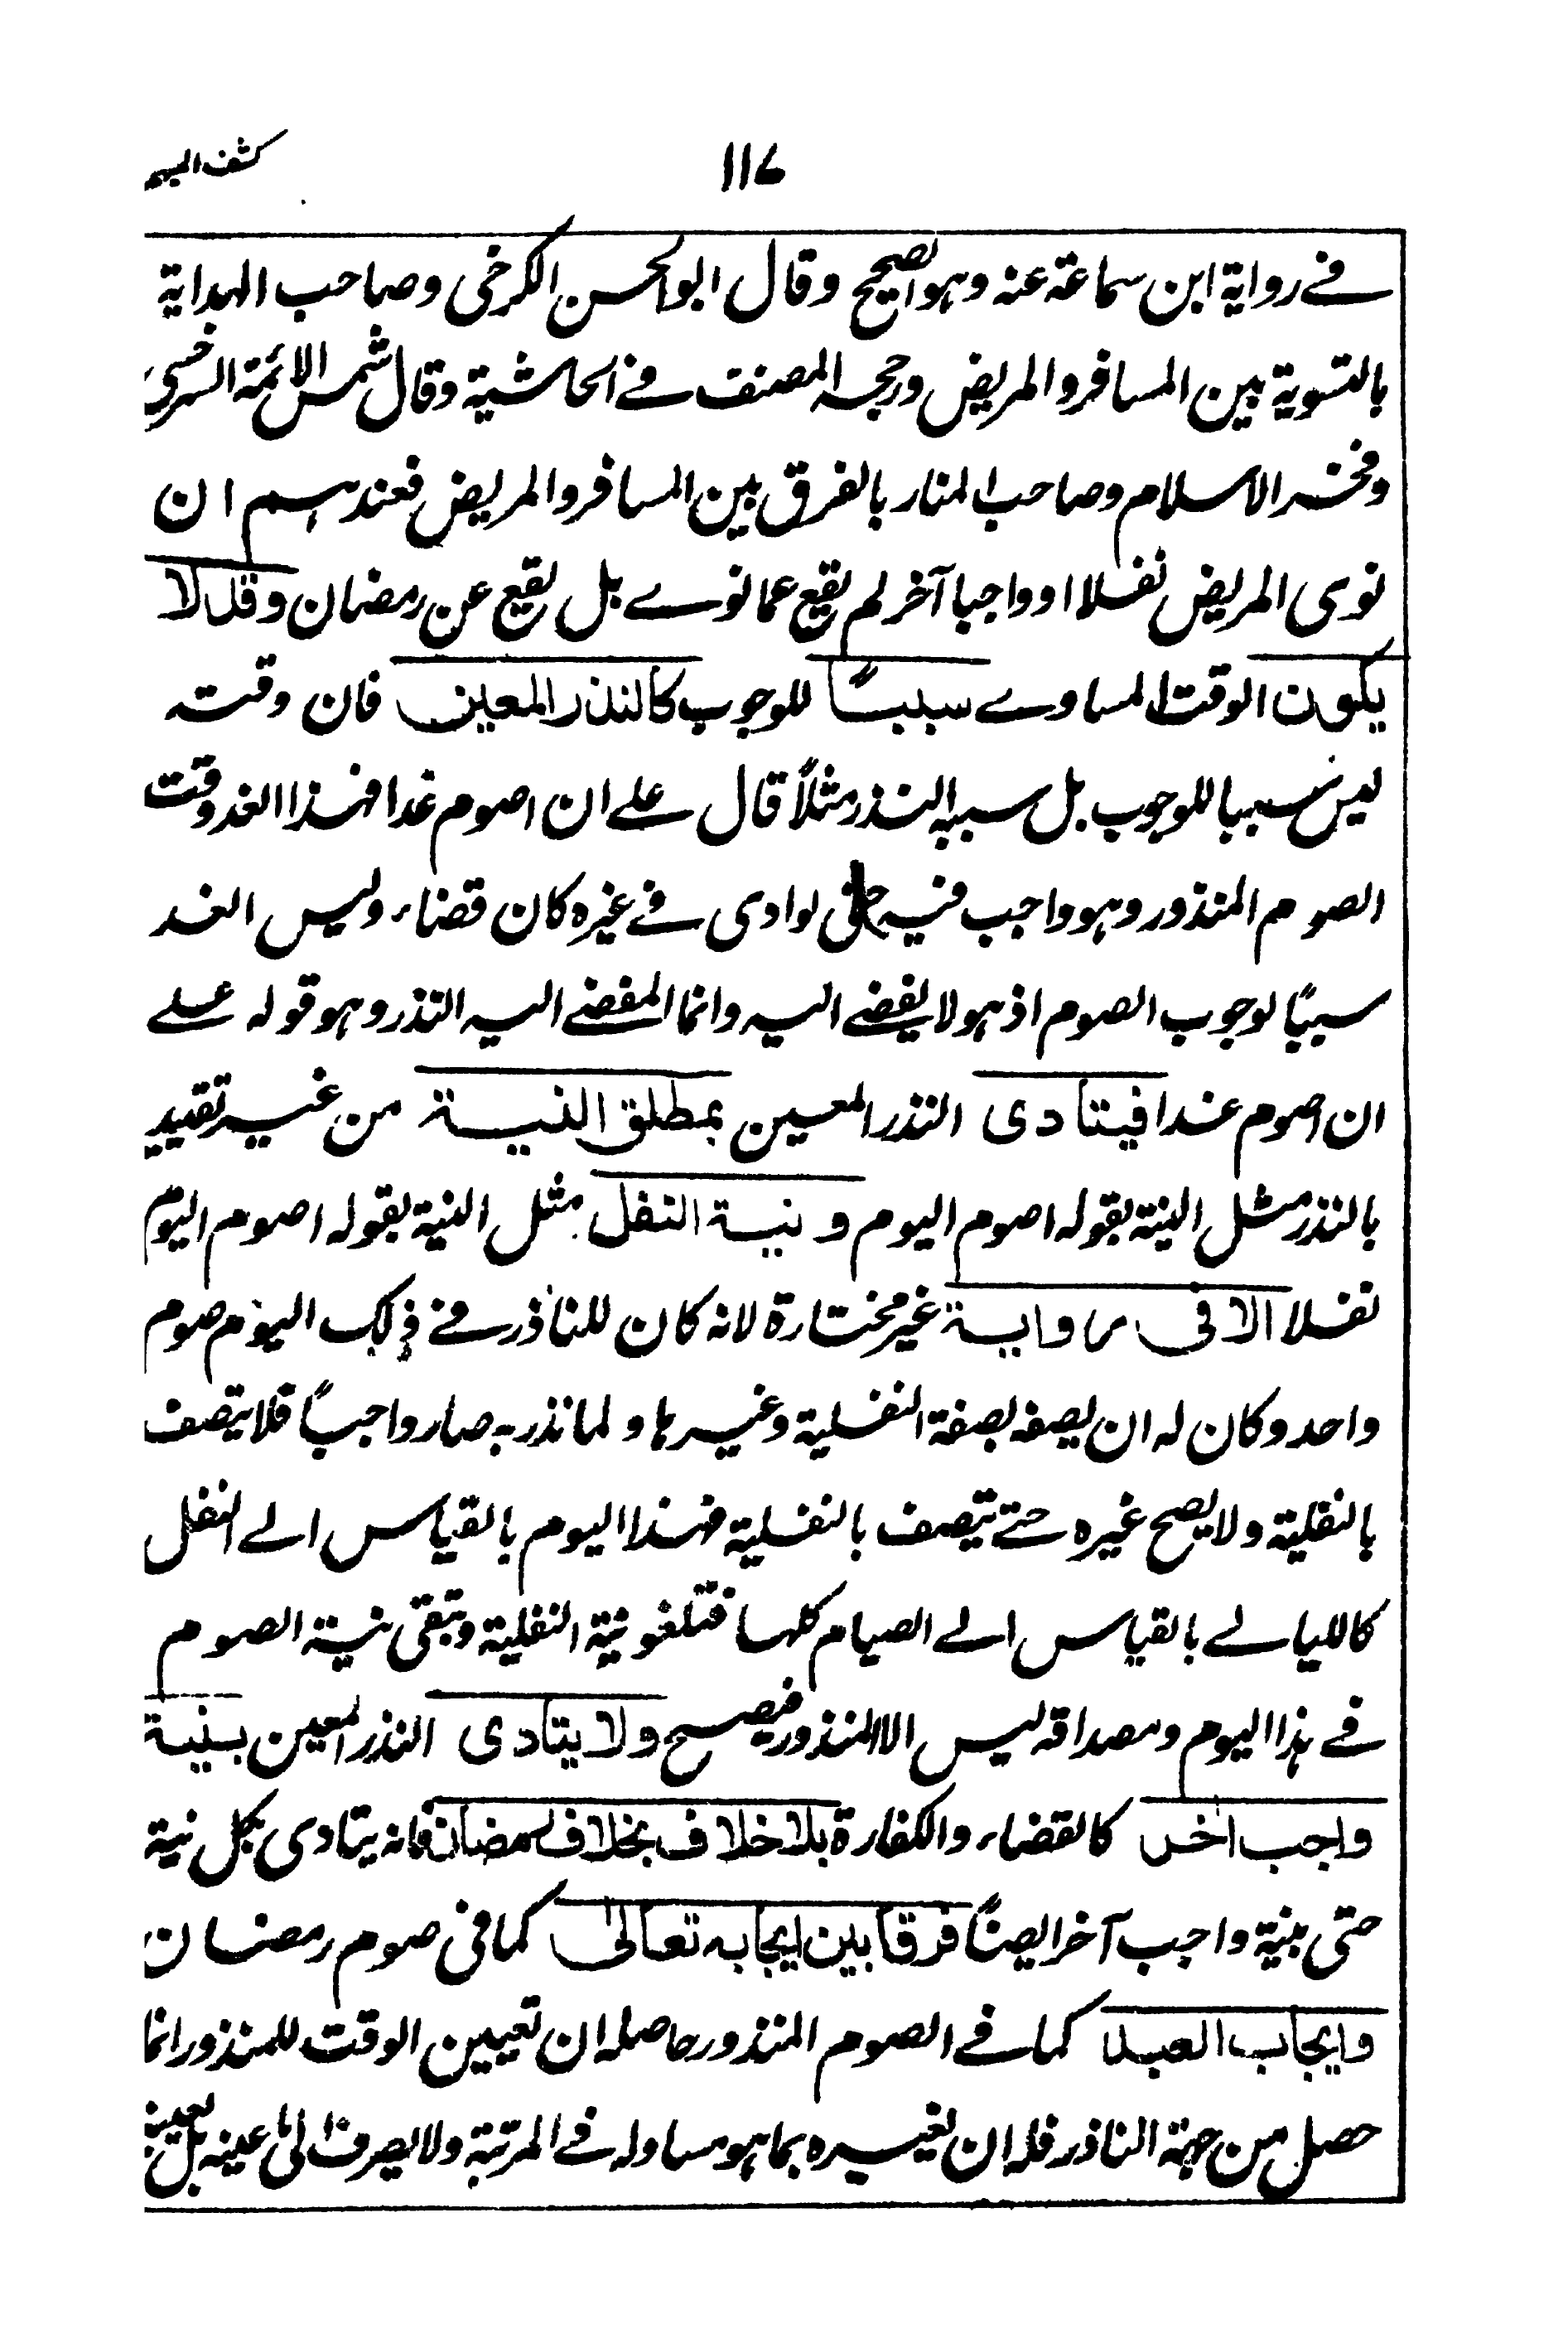 كشف المبهم
١١٧
في رواية ابن سماعة عنه وهو الصحيح وقال ابو الحسن الكرخي وصاحب الهداية
بالتسوية بين المسافر والمريض ورجحه المصنف في الحاشية وقال شمس الائمة السرخسي
وفخر الاسلام وصاحب المنار بالفرق بين المسافر والمريض فعندهم ان
نوى المريض نفلا او واجبا آخر لم يقع عما نوى بل يقع عن رمضان وقد لا
يكون الوقت المساوي سببًا للوجوب كالنذر المعين فان وقته
ليس سببا للوجوب بل سببه النذر مثلًا قال علي ان اصوم غدا فهذا الغد وقت
الصوم المنذور وهو واجب فيه حتى لو ادى في غيره كان قضاء وليس الغد
سببًا لوجوب الصوم اذ هو لا يفضي اليه وانما المفضي اليه النذر وهو قوله علي
ان اصوم غدا فيتادى النذر المعين بمطلق النية من غير تقييد
بالنذر مثل النية بقوله اصوم اليوم ونية النفل مثل النية بقوله اصوم اليوم
نفلا الا فى رواية غير مختارة لانه كان للناذر في ذلك اليوم صوم
واحد وكان له ان يصفه بصفة النفلية وغيرها ولما نذر به صار واجبًا فلا يتصف
بالنفلية ولا يصح غيره حتى يتصف بالنفلية فهذا اليوم بالقياس الى النفل
كالليالي بالقياس الى الصيام كلها فتلغو نية النفلية وتبقى نية الصوم
في هذا اليوم ومصداقه ليس الا المنذور فيصح ولا يتادى النذر المعين بنية
واجب اخر كالقضاء والكفارة بلا خلاف بخلاف رمضان فانه يتادى بكل نية
حتى بنية واجب آخر ايضًا فرقا بين ايجابه تعالى كما فى صوم رمضان
وايجاب العبد كما في الصوم المنذور حاصله ان تعيين الوقت للمنذور انما
حصل من جهة الناذر فله ان يغيره بما هو مساو له في المرتبة ولا يصرف الى ما عينه بل